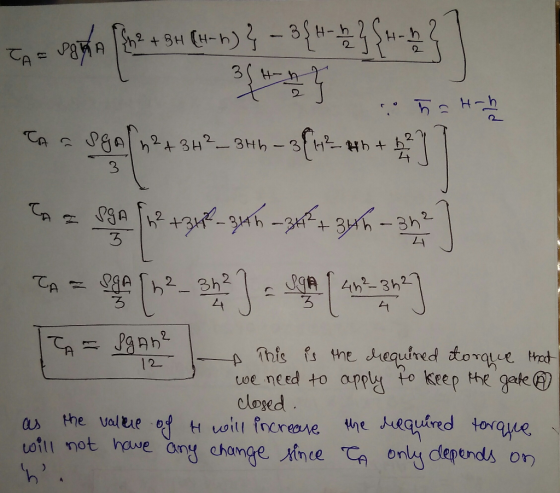 τ_A = ρg h̄ A [ ( {h² + 3H (H-h)} - 3{H - h/2}{H - h/2} ) / ( 3{H - h/2} ) ]
∵ h̄ = H - h/2
τ_A = ρgA/3 [ h² + 3H² - 3Hh - 3[H² - Hh + h²/4] ]
τ_A = ρgA/3 [ h² + 3H² - 3Hh - 3H² + 3Hh - 3h²/4 ]
τ_A = ρgA/3 [ h² - 3h²/4 ] = ρgA/3 [ (4h² - 3h²)/4 ]
τ_A = ρgAh²/12 → This is the required torque that
we need to apply to keep the gate (A)
closed.
as the value of H will increase the required torque
will not have any change since τ_A only depends on
'h'.